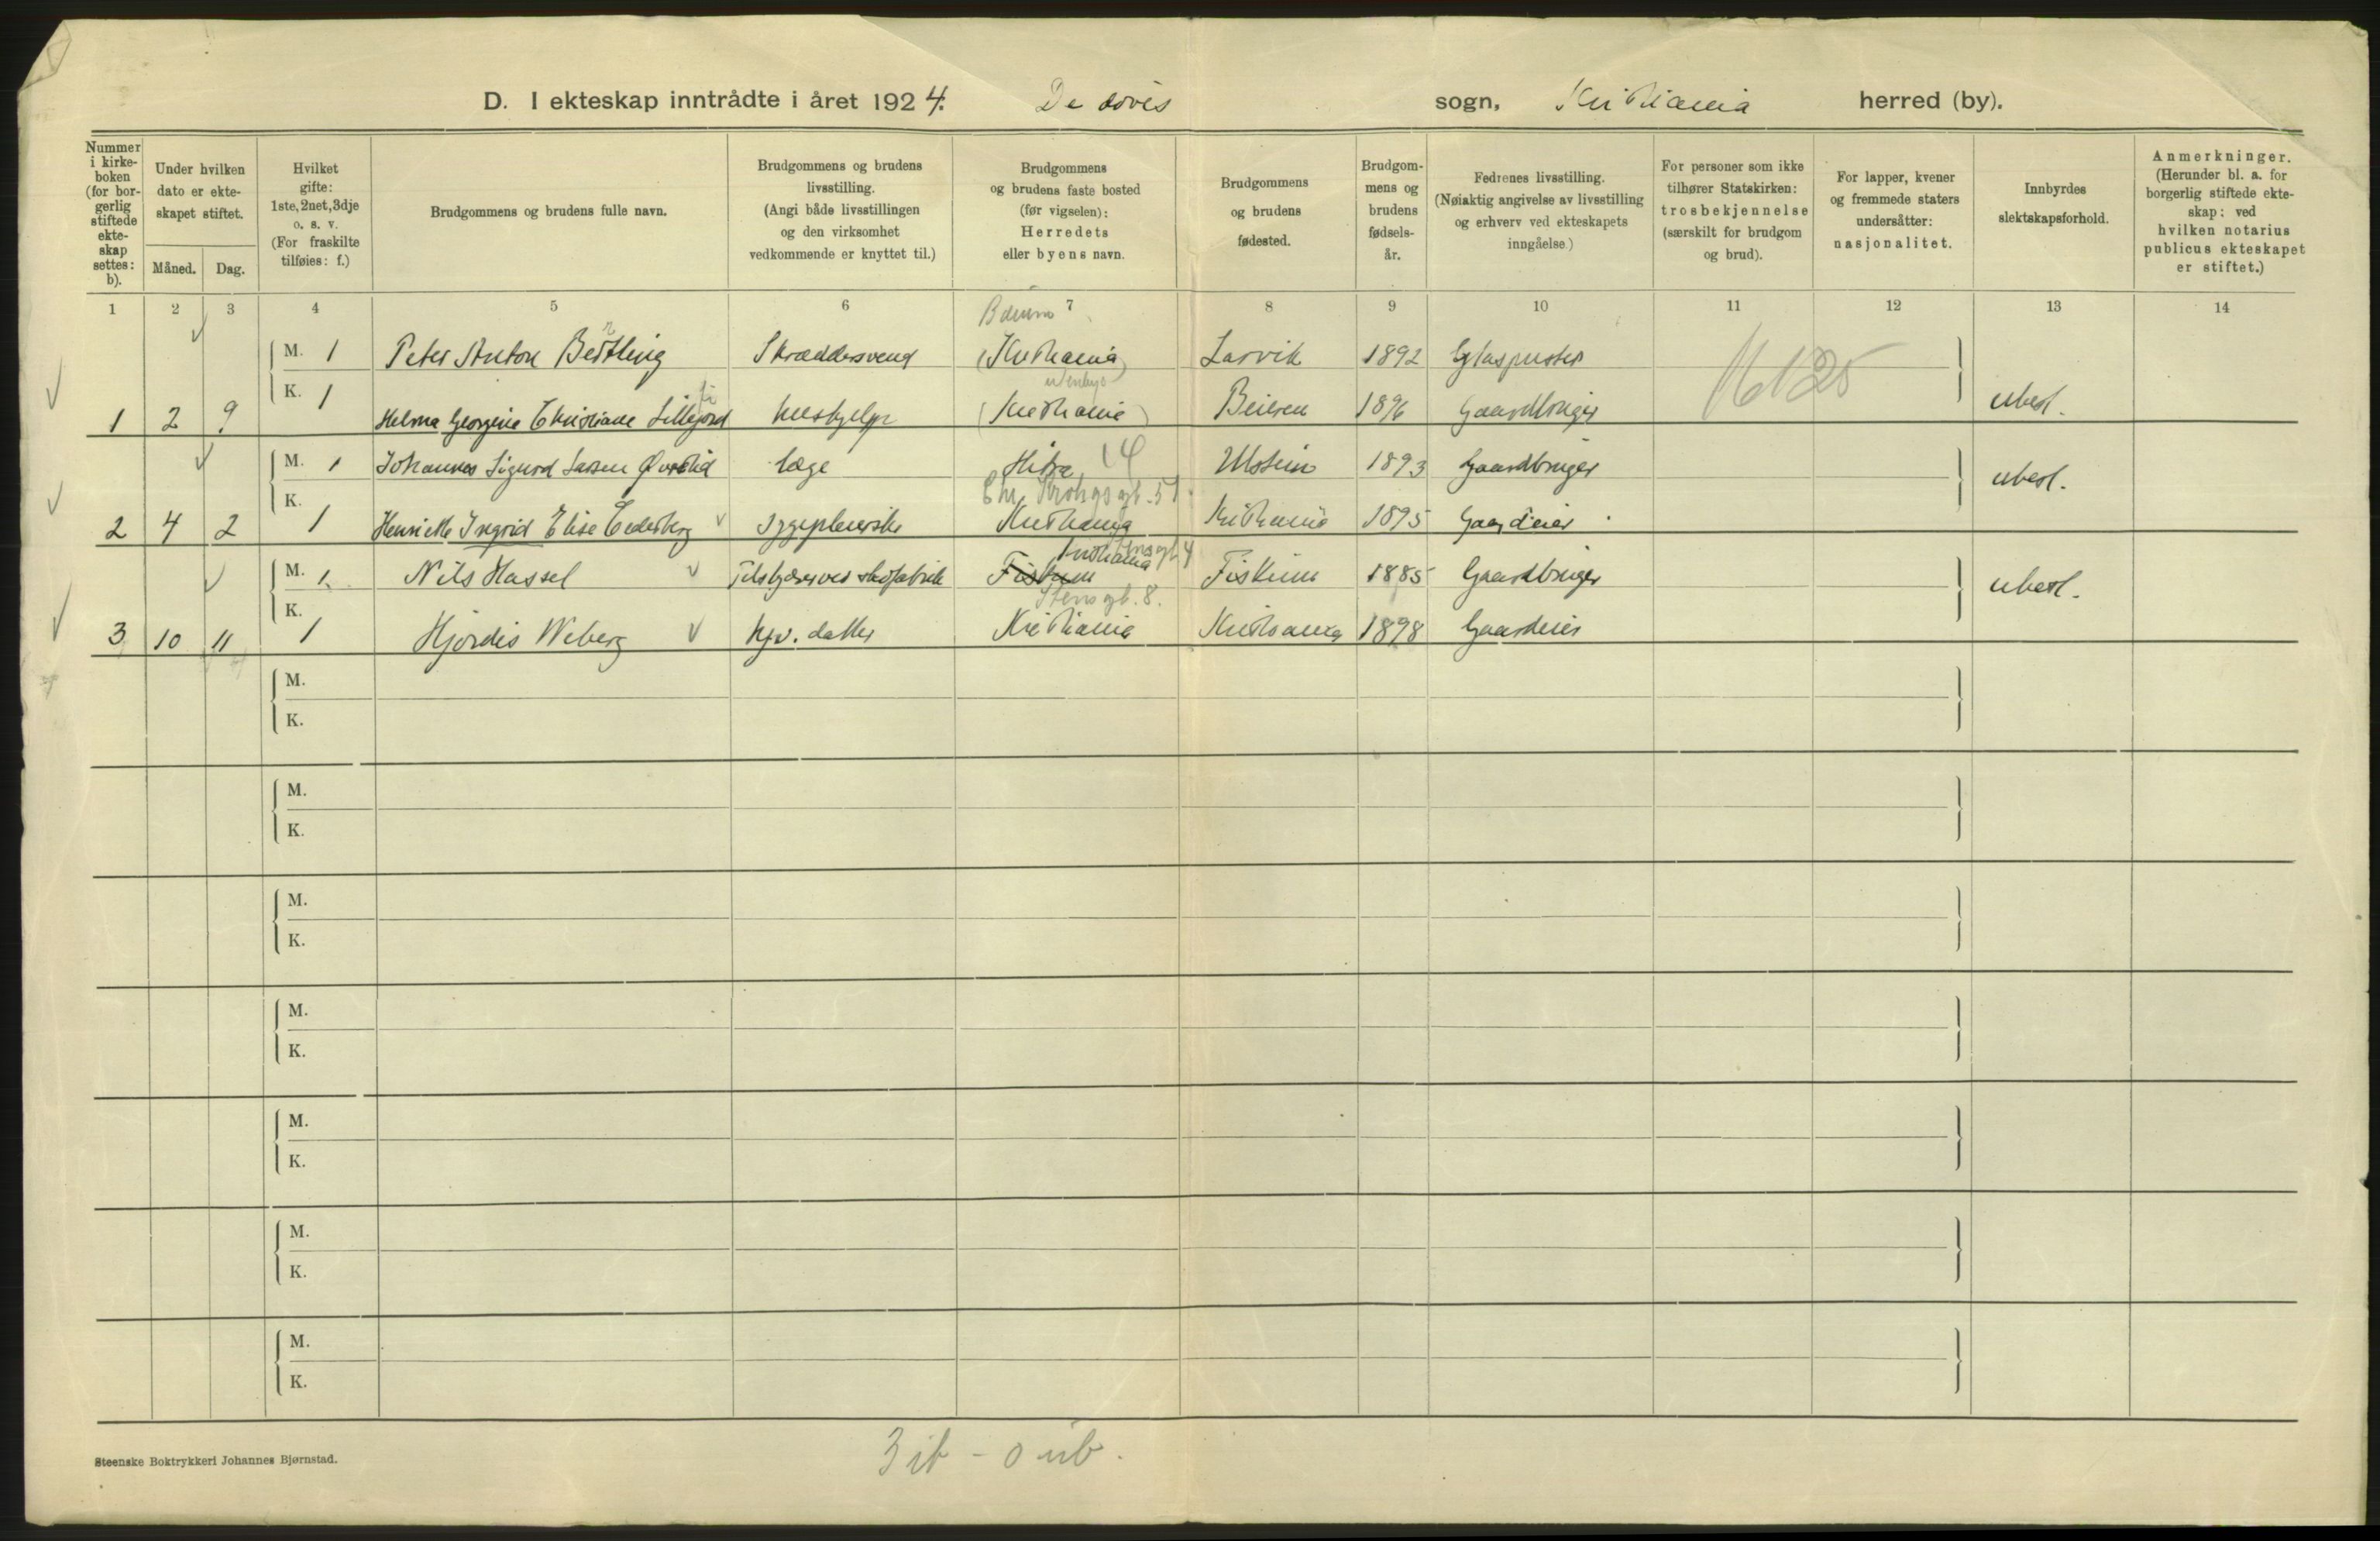 D. I ekteskap inntrådte i året 1924. De døves sogn, Kristiania herred (by).
Nummer i kirke- boken (for bor- gerlig stiftede ekte- skap settes: b).
Under hvilken dato er ekte- skapet stiftet.
Måned. Dag.
Hvilket gifte: 1ste, 2net, 3dje o. s. v. (For fraskilte tilføies: f.)
Brudgommens og brudens fulle navn.
Brudgommens og brudens livsstilling. (Angi både livsstillingen og den virksomhet vedkommende er knyttet til.)
Brudgommens og brudens faste bosted (før vigselen): Herredets eller byens navn.
Brudgommens og brudens fødested.
Brudgom- mens og brudens fødsels- år.
Fedrenes livsstilling. (Nøiaktig angivelse av livsstilling og erhverv ved ekteskapets inngåelse.)
For personer som ikke tilhører Statskirken: trosbekjennelse (særskilt for brudgom og brud).
For lapper, kvener og fremmede staters undersåtter: nasjonalitet.
Innbyrdes slektskapsforhold.
Anmerkninger. (Herunder bl. a. for borgerlig stiftede ekte- skap: ved hvilken notarius publicus ekteskapet er stiftet.)
1 2 3 4 5 6 7 8 9 10 11 12 13 14
Bærum
M. 1 Peter Anton Bertling Skræddersvend (Kristiania) Larvik 1892 Glaspuster
utenbys
1 2 9 K. 1 Helma Georgine Christiane Lillejord hushjelp (Kristiania) Beieren 1896 Gaardbruger ubesl.
M. 1 Johannes Sigurd Larsen Øvrelid læge Hitra 14 Ulstein 1893 Gaardbruger ubesl.
Chr. Krohgs gt. 51
2 4 2 K. 1 Henriette Ingrid Elise Cederberg sygepleierske Kristiania Kristiania 1895 Gaardeier
Kristiania
M. 1. Nils Hassel Tilskjærer ved skofabrik Fiskum Fiskum 1885 Gaardbruger ubesl.
Stensgt. 8.
3 10 11 K. 1 Hjørdis Weberg hjv. datter Kristiania Kristiania 1898 Gaardeier
M.
K.
M.
K.
M.
K.
M.
K.
M.
K.
M.
K.
M.
K.
3 ib - 0 ub.
Steenske Boktrykkeri Johannes Bjørnstad.